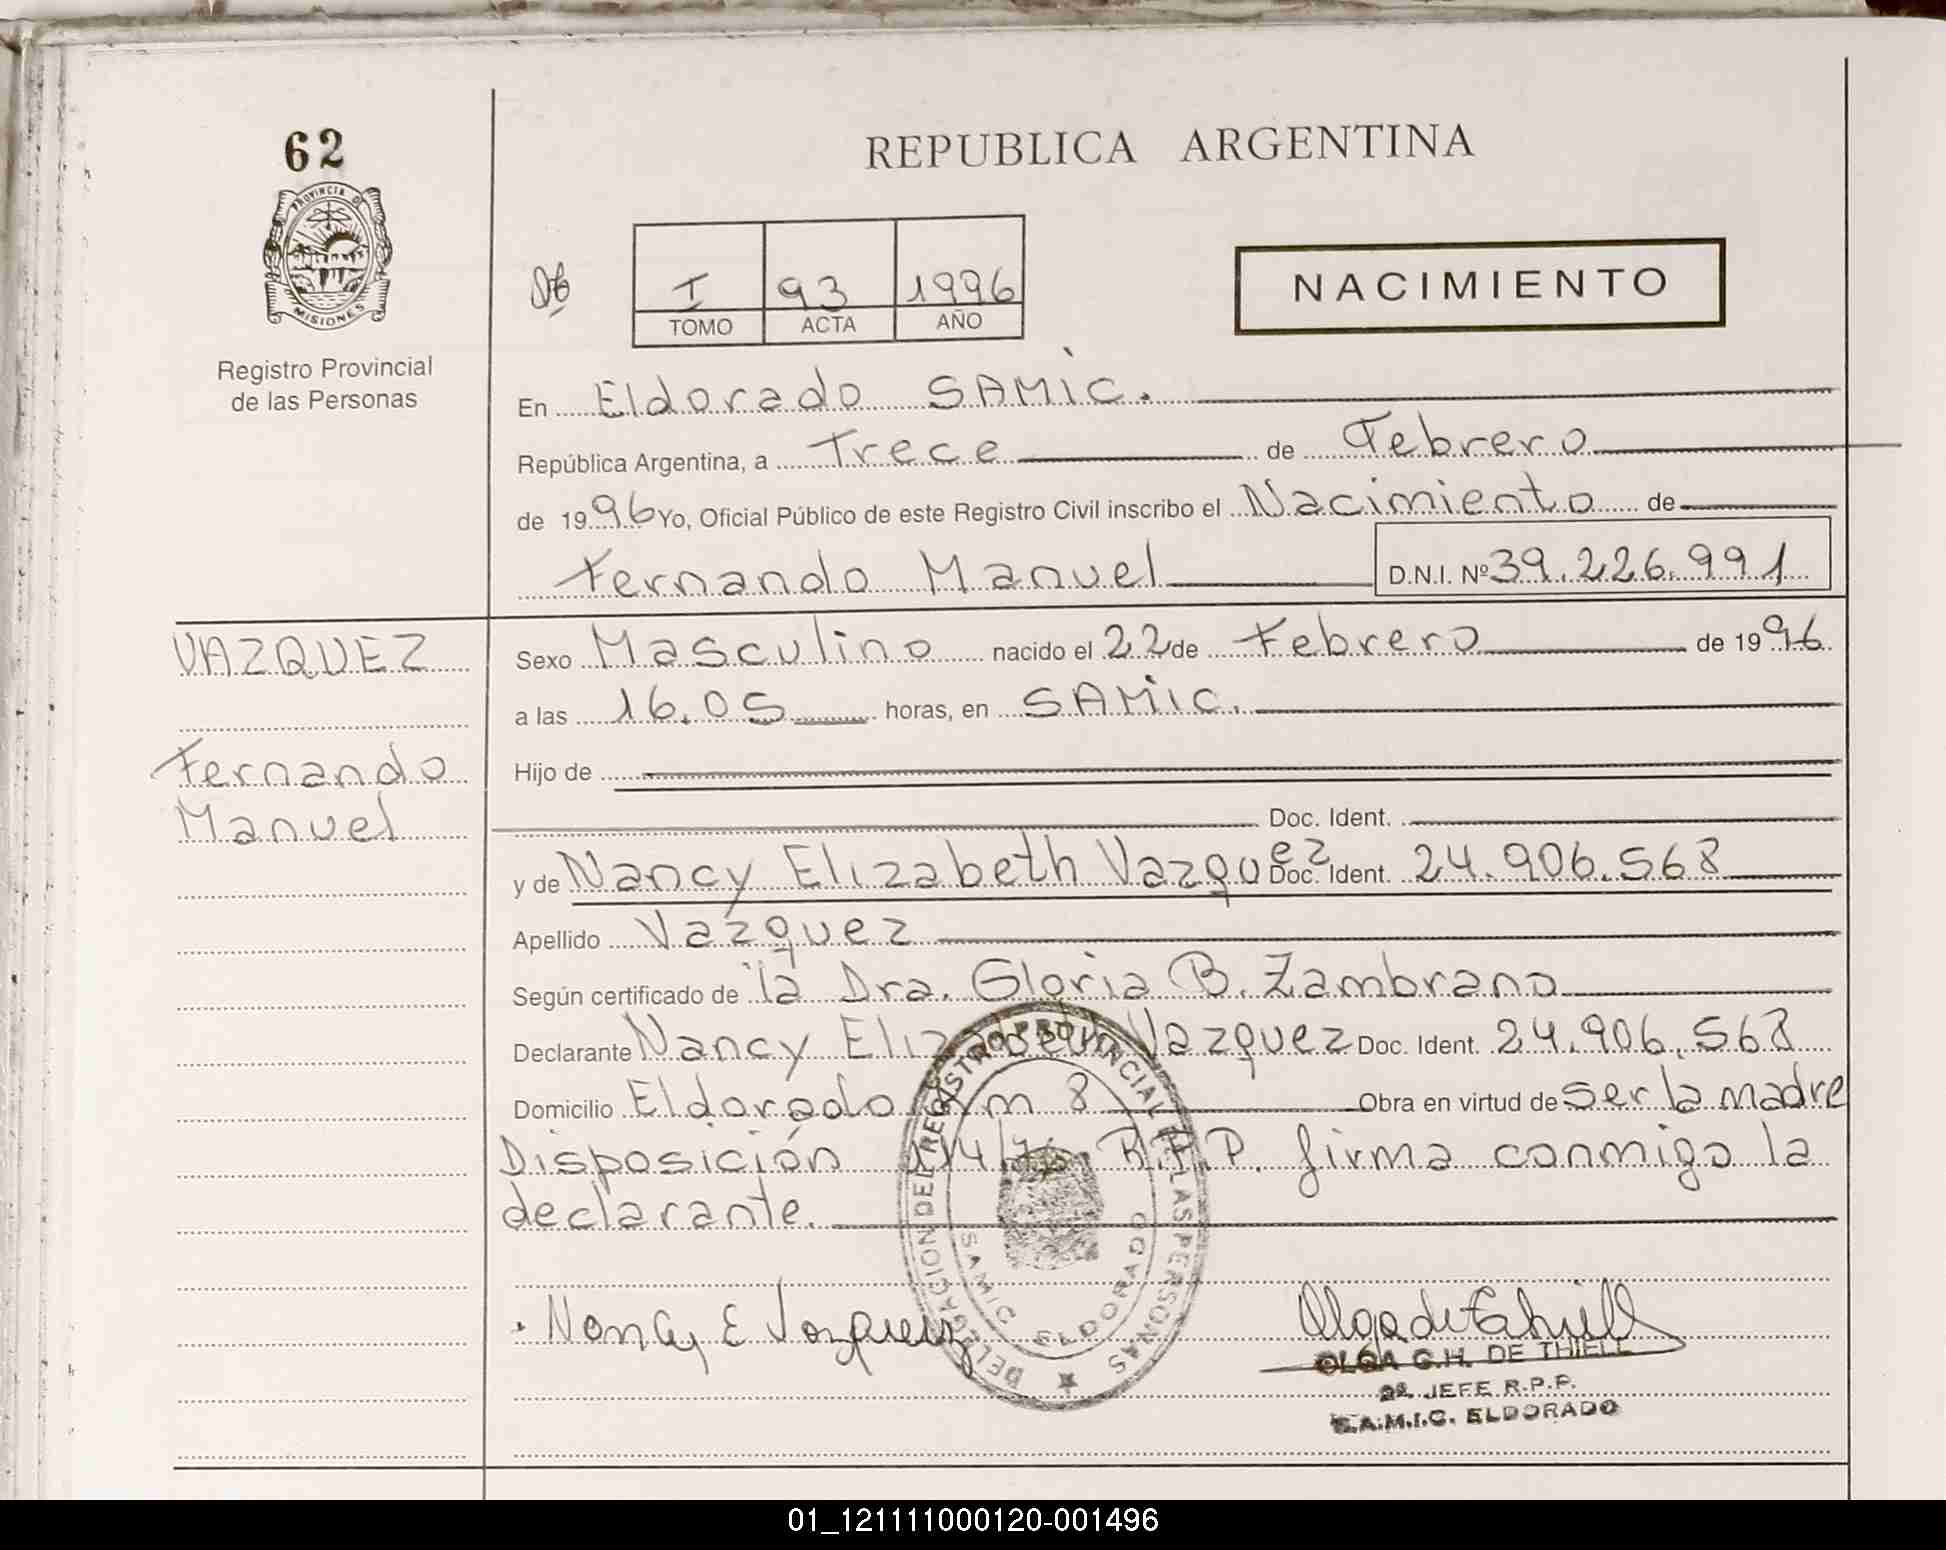 62
PROVINCIA D
MISIONES
Registro Provincial
de las Personas
REPUBLICA ARGENTINA
I 93 1996
TOMO ACTA AÑO
NACIMIENTO
En Eldorado SAMIC.
República Argentina, a Trece de Febrero
de 1996 Yo, Oficial Público de este Registro Civil inscribo el Nacimiento de
Fernando Manuel D.N.I. Nº 39.226.991
VAZQUEZ
Fernando
Manuel
Sexo Masculino nacido el 22 de Febrero de 1996
a las 16.05 horas, en SAMIC.
Hijo de
Doc. Ident.
y de Nancy Elizabeth Vazquez Doc. Ident. 24.906.568
Apellido Vazquez
Según certificado de la Dra. Gloria B. Zambrano
Declarante Nancy Elizabeth Vazquez Doc. Ident. 24.906.568
Domicilio Eldorado Km 8 Obra en virtud de ser la madre
Disposición R.P.P. firma conmigo la
declarante.
DELEGACION DEL REGISTRO PROVINCIAL DE LAS PERSONAS
SAMIC ELDORADO
Nancy E Vazquez
OLGA C.H. DE THIELL
2º JEFE R.P.P.
S.A.M.I.C. ELDORADO
01_121111000120-001496